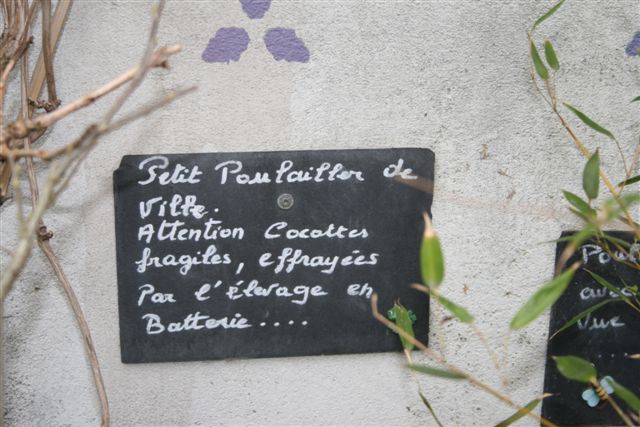 Petit Poulailler de
Ville.
Attention Cocottes
fragiles, effrayées
Par l'élevage en
Batterie....
avec
Vue
...